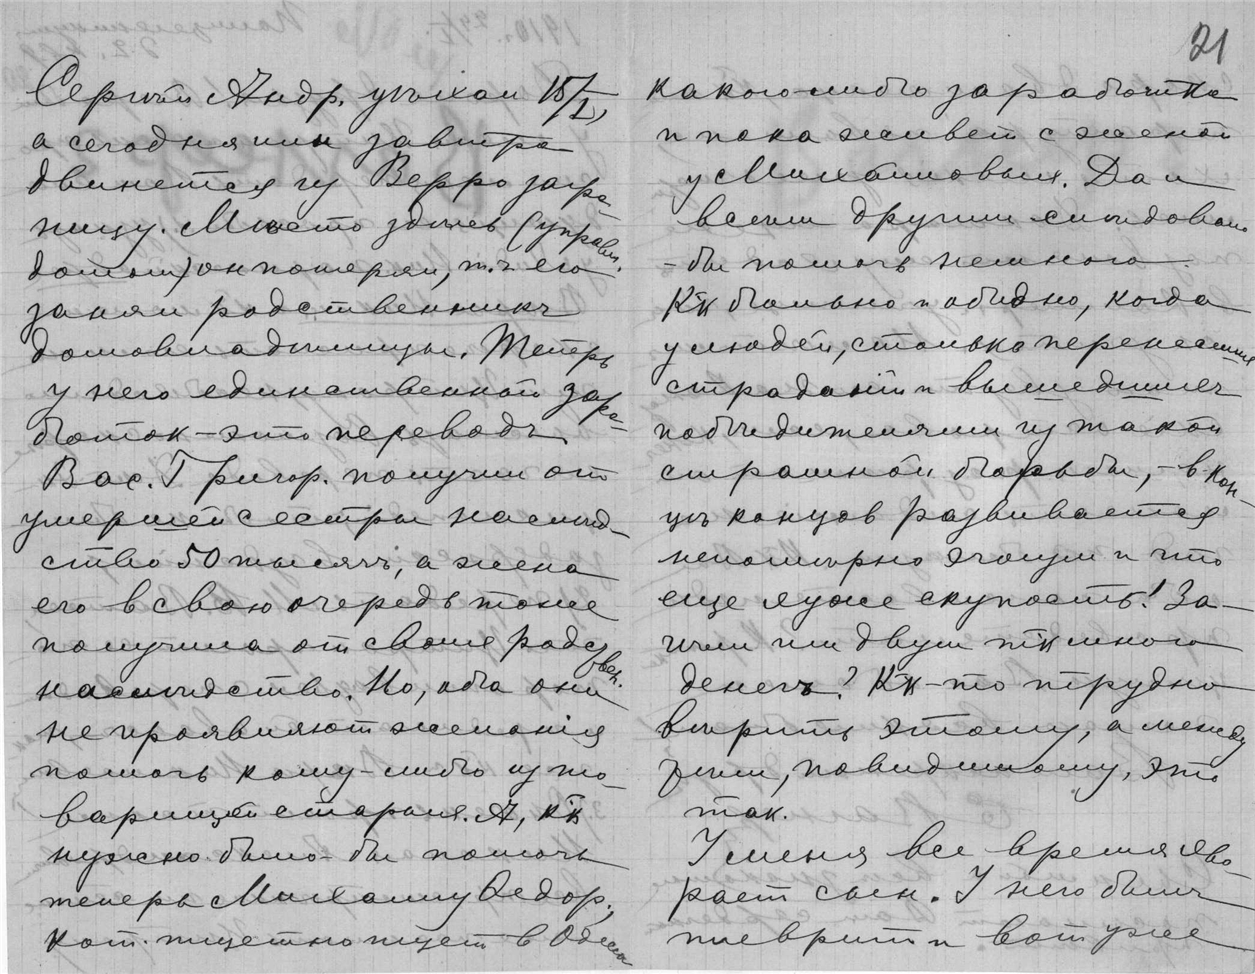 21
Сергѣй Андр. уѣхал 15/I,
а сегодня или завтра
двинется из Верро загра-
ницу. Мѣсто здѣсь (управл.
домом) он потерял, т.ч. его
занял родственникъ
домовладѣлицы. Теперь
у него единственной зара-
боток – это переводъ.
Вас. Григор. получил от
умершей сестры наслѣд-
ство 50 тысячъ, а жена
его в свою очередь тоже
получила от своих родствен.
наслѣдство. Но, оба они
не проявляют желанія
помочь кому-либо из то-
варищей старых. А, к̅к
нужно было-бы помочь
теперь Михаилу Федор.,
кот. тщетно ищет в Одессѣ
какого-либо заработка
и пока живет с женой
у Михайловых. Да и
всѣм другим слѣдовало
-бы помочь немного.
К̅к больно и обидно, когда
у людей, столько перенесших
страданій и вышедших
побѣдителями из такой
страшной борьбы, – в кон-
цѣ концов развивается
непомѣрно эгоизм и что
еще хуже скупость! За-
чѣм им двум т̅к много
денегъ? К̅к-то трудно
вѣрить этому, а между
тѣм, повидимому, это
так.
У меня все время хво-
рает сын. У него был
плеврит и вот уже